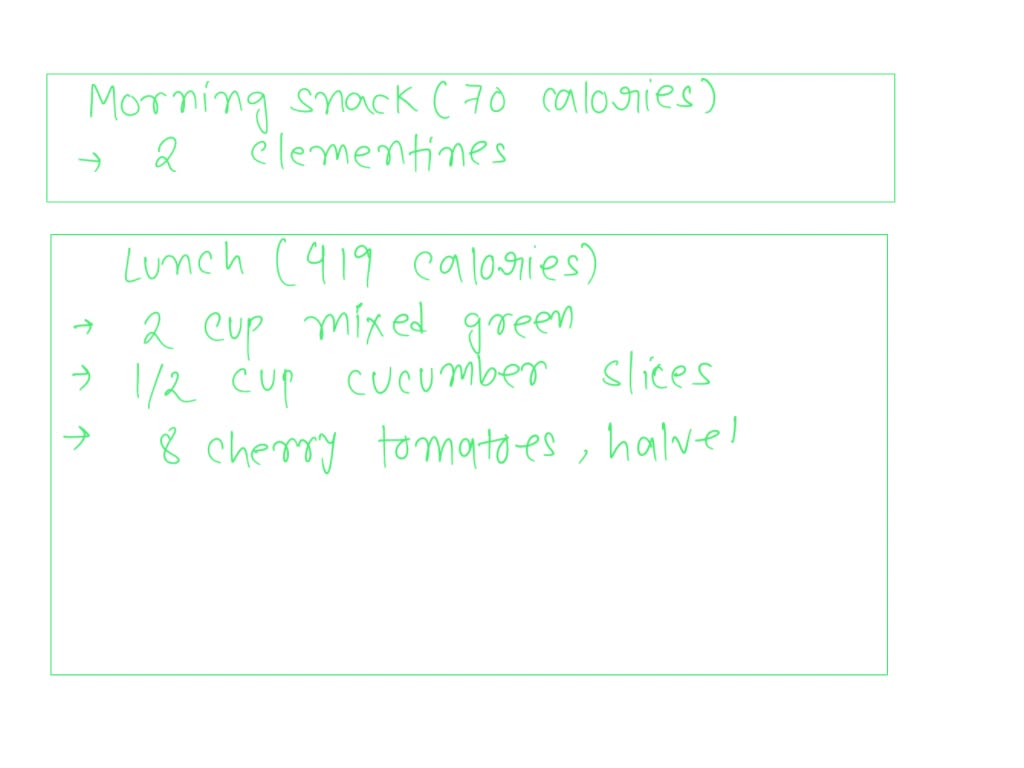 Morning snack (70 calories)
→ 2 clementines
Lunch (419 calories)
→ 2 cup mixed green
→ 1/2 cup cucumber slices
→ 8 cherry tomatoes, halve